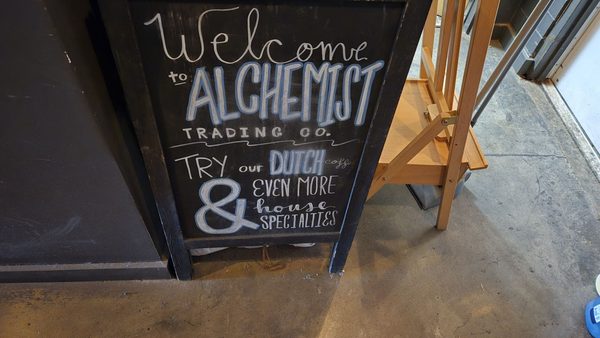 Welcome
to ALCHEMIST
TRADING CO.
TRY our DUTCH coffee
& EVEN MORE
house
SPECIALTIES